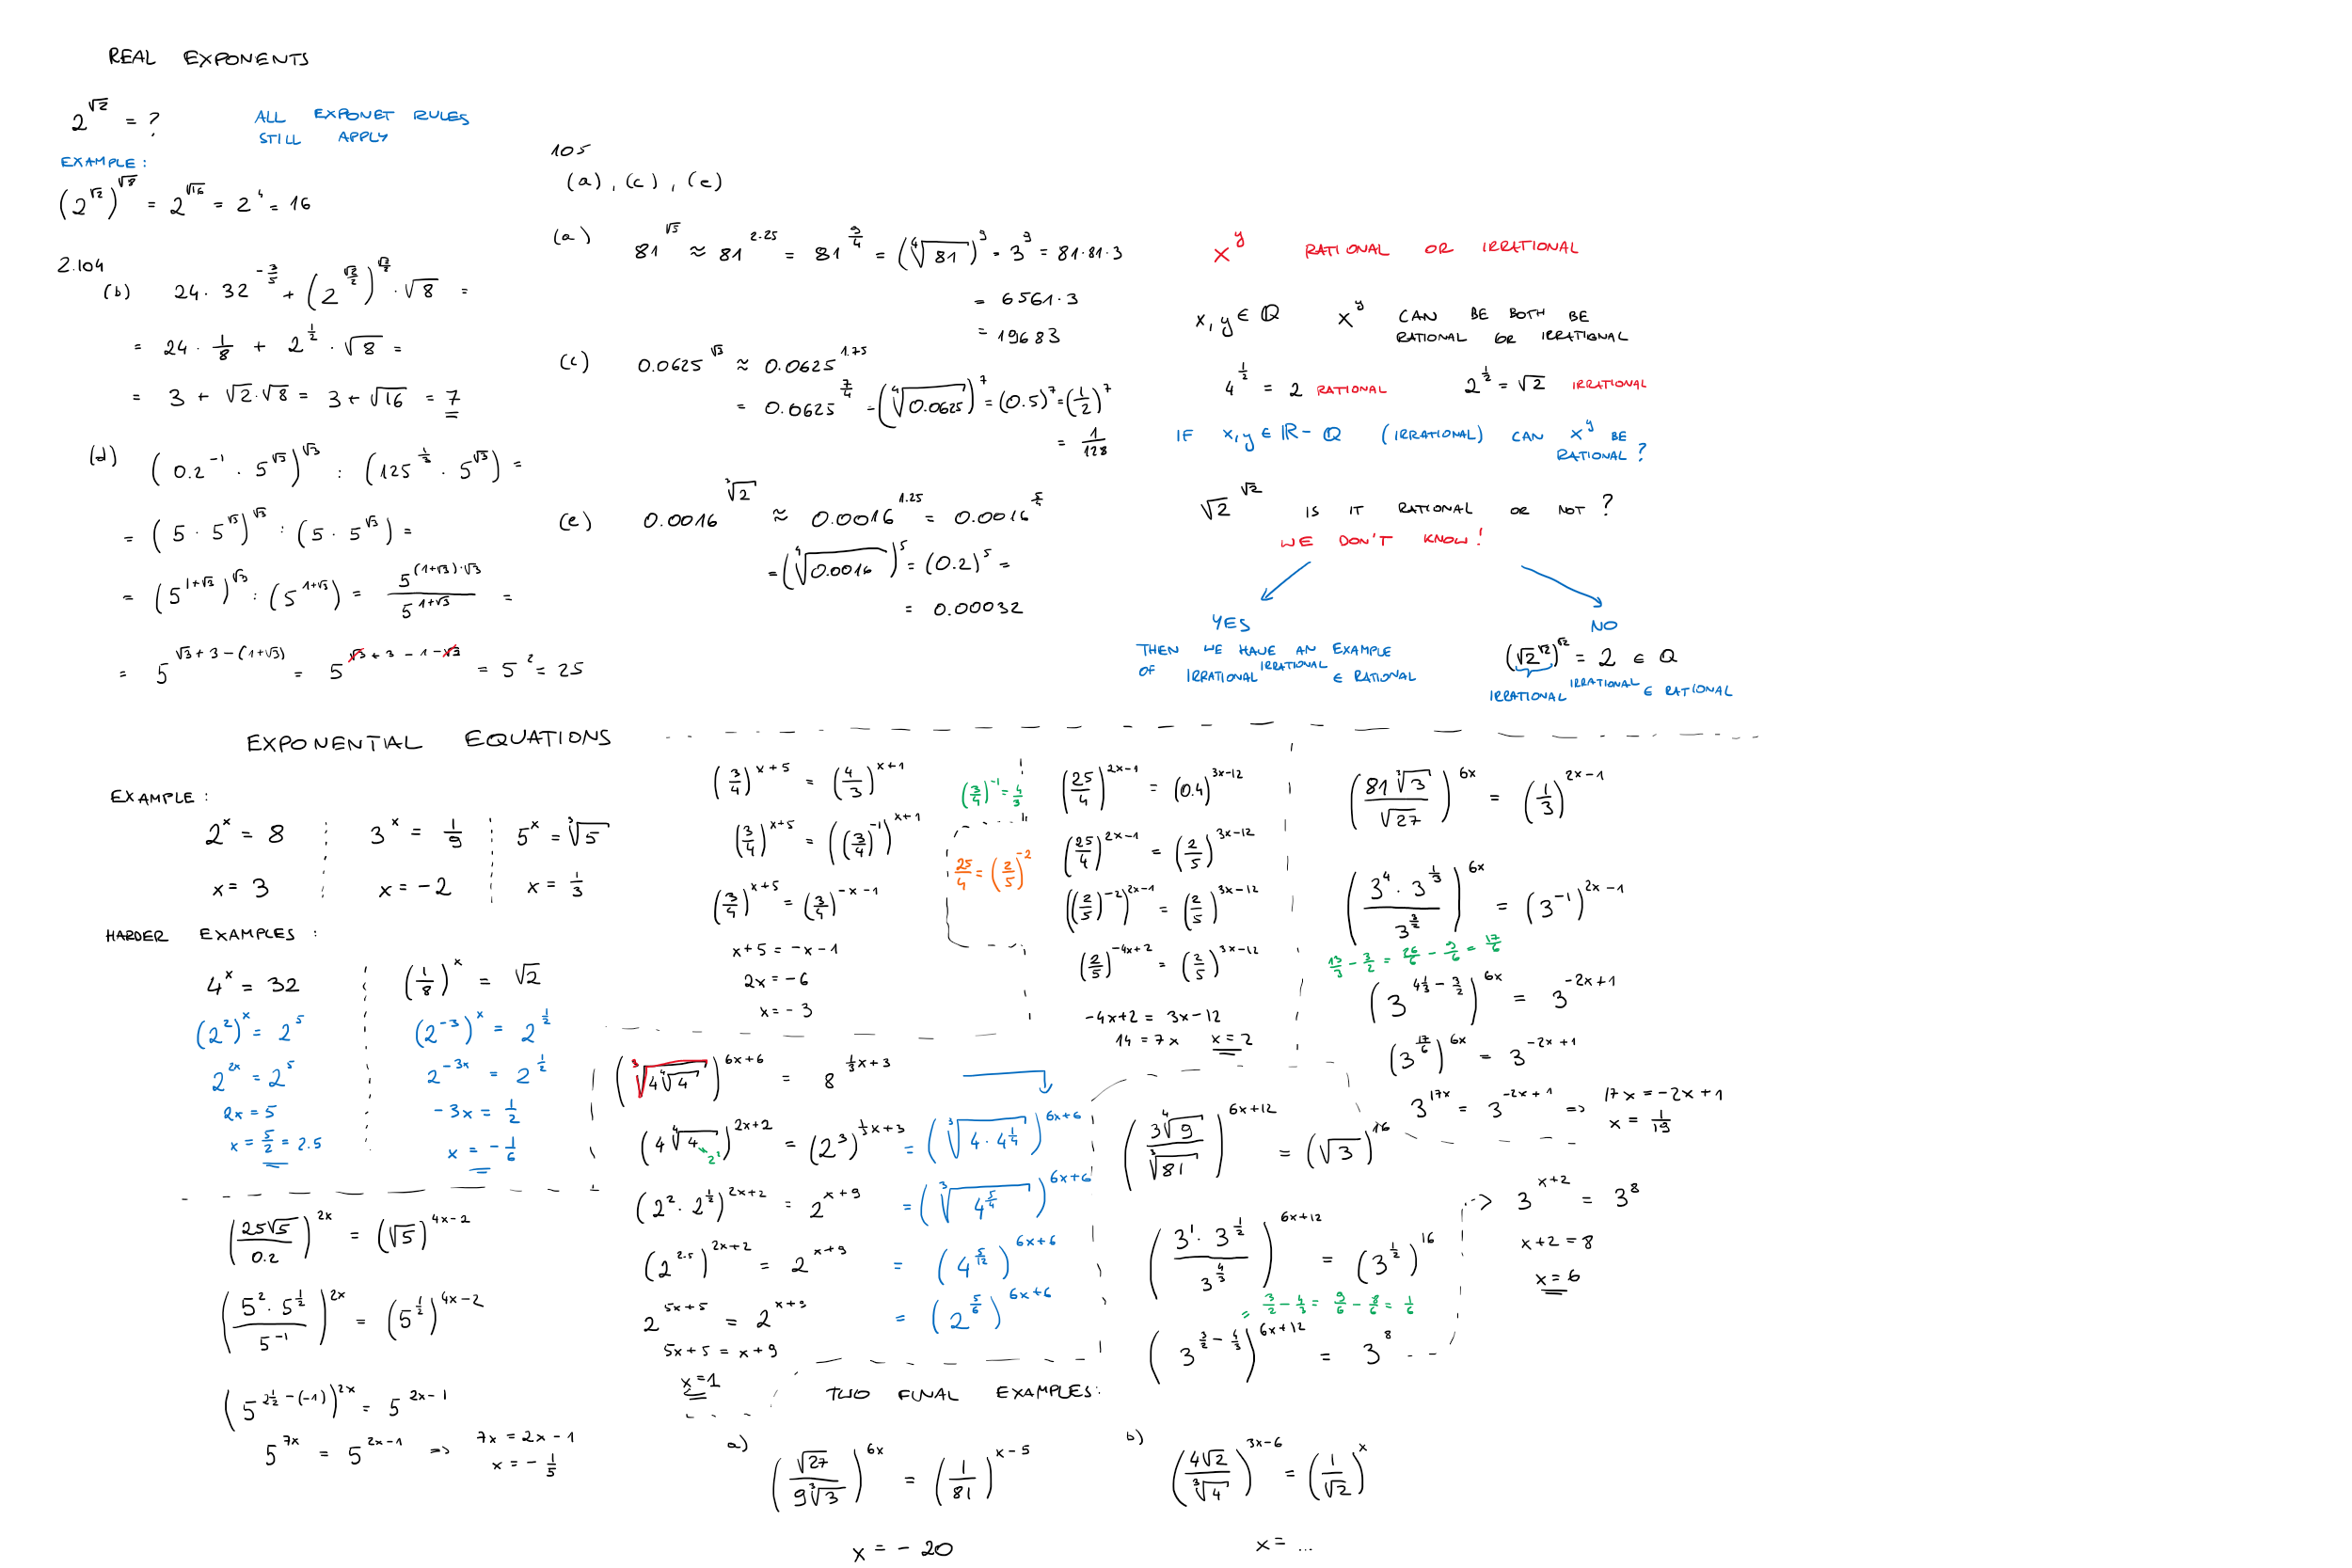 REAL EXPONENTS
2^√2 = ?
ALL EXPONET RULES
STILL APPLY
EXAMPLE:
(2^√2)^√8 = 2^√16 = 2^4 = 16
2.104
(b) 24 · 32^(-3/5) + (2^(√2/2))^(√2/2) · √8 =
= 24 · 1/8 + 2^(1/2) · √8 =
= 3 + √2·√8 = 3 + √16 = 7
(d) (0.2^-1 · 5^√3)^√3 : (125^(1/3) · 5^√3) =
= (5 · 5^√3)^√3 : (5 · 5^√3) =
= (5^(1+√3))^√3 : (5^(1+√3)) = 5^((1+√3)·√3) / 5^(1+√3) =
= 5^(√3+3-(1+√3)) = 5^(√3+3-1-√3) = 5^2 = 25
105
(a), (c), (e)
(a) 81^√5 ≈ 81^2.25 = 81^(9/4) = (⁴√81)^9 = 3^9 = 81·81·3
= 6561·3
= 19683
(c) 0.0625^√3 ≈ 0.0625^1.75
= 0.0625^(7/4) = (⁴√0.0625)^7 = (0.5)^7 = (1/2)^7
= 1/128
(e) 0.0016^(³√2) ≈ 0.0016^1.25 = 0.0016^(5/4)
= (⁴√0.0016)^5 = (0.2)^5 =
= 0.00032
x^y RATIONAL OR IRRATIONAL
x, y ∈ ℚ x^y CAN BE BOTH BE
RATIONAL OR IRRATIONAL
4^(1/2) = 2 RATIONAL 2^(1/2) = √2 IRRATIONAL
IF x, y ∈ ℝ - ℚ (IRRATIONAL) CAN x^y BE
RATIONAL?
√2^√2 IS IT RATIONAL OR NOT?
WE DON'T KNOW!
YES
THEN WE HAVE AN EXAMPLE
OF IRRATIONAL^IRRATIONAL ∈ RATIONAL
NO
(√2^√2)^√2 = 2 ∈ Q
IRRATIONAL^IRRATIONAL ∈ RATIONAL
EXPONENTIAL EQUATIONS
EXAMPLE:
2^x = 8
x = 3
3^x = 1/9
x = -2
5^x = ³√5
x = 1/3
HARDER EXAMPLES:
4^x = 32
(2^2)^x = 2^5
2^2x = 2^5
2x = 5
x = 5/2 = 2.5
(1/8)^x = √2
(2^-3)^x = 2^(1/2)
2^-3x = 2^(1/2)
-3x = 1/2
x = -1/6
(25√5 / 0.2)^2x = (√5)^(4x-2)
(5^2 · 5^(1/2) / 5^-1)^2x = (5^(1/2))^(4x-2)
(5^(2 1/2 - (-1)))^2x = 5^(2x-1)
5^7x = 5^(2x-1) => 7x = 2x - 1
x = -1/5
(3/4)^(x+5) = (4/3)^(x+1)
(3/4)^-1 = 4/3
(3/4)^(x+5) = ((3/4)^-1)^(x+1)
(3/4)^(x+5) = (3/4)^(-x-1)
x+5 = -x-1
2x = -6
x = -3
25/4 = (2/5)^-2
(25/4)^(2x-1) = (0.4)^(3x-12)
(25/4)^(2x-1) = (2/5)^(3x-12)
((2/5)^-2)^(2x-1) = (2/5)^(3x-12)
(2/5)^(-4x+2) = (2/5)^(3x-12)
-4x+2 = 3x-12
14 = 7x x = 2
(81 ³√3 / √27)^6x = (1/3)^(2x-1)
(3^4 · 3^(1/3) / 3^(3/2))^6x = (3^-1)^(2x-1)
13/3 - 3/2 = 26/6 - 9/6 = 17/6
(3^(4 1/3 - 3/2))^6x = 3^(-2x+1)
(3^(17/6))^6x = 3^(-2x+1)
3^17x = 3^(-2x+1) => 17x = -2x+1
x = 1/19
(³√(4 ⁴√4))^(6x+6) = 8^(1/3x+3)
(4 ⁴√4)^(2x+2) = (2^3)^(1/3x+3) = (³√(4 · 4^(1/4)))^(6x+6)
2^2
(2^2 · 2^(1/2))^(2x+2) = 2^(x+9) = (³√(4^(5/4)))^(6x+6)
(2^2.5)^(2x+2) = 2^(x+9) = (4^(5/12))^(6x+6)
2^(5x+5) = 2^(x+9) = (2^(5/6))^(6x+6)
5x+5 = x+9
x = 1
(3 ⁴√9 / ³√81)^(6x+12) = (√3)^16
(3^1 · 3^(1/2) / 3^(4/3))^(6x+12) = (3^(1/2))^16
= 3/2 - 4/3 = 9/6 - 8/6 = 1/6
(3^(3/2 - 4/3))^(6x+12) = 3^8
3^(x+2) = 3^8
x+2 = 8
x = 6
TWO FINAL EXAMPLES:
a) (√27 / 9 ³√3)^6x = (1/81)^(x-5)
x = -20
b) (4√2 / ³√4)^(3x-6) = (1/√2)^x
x = ...